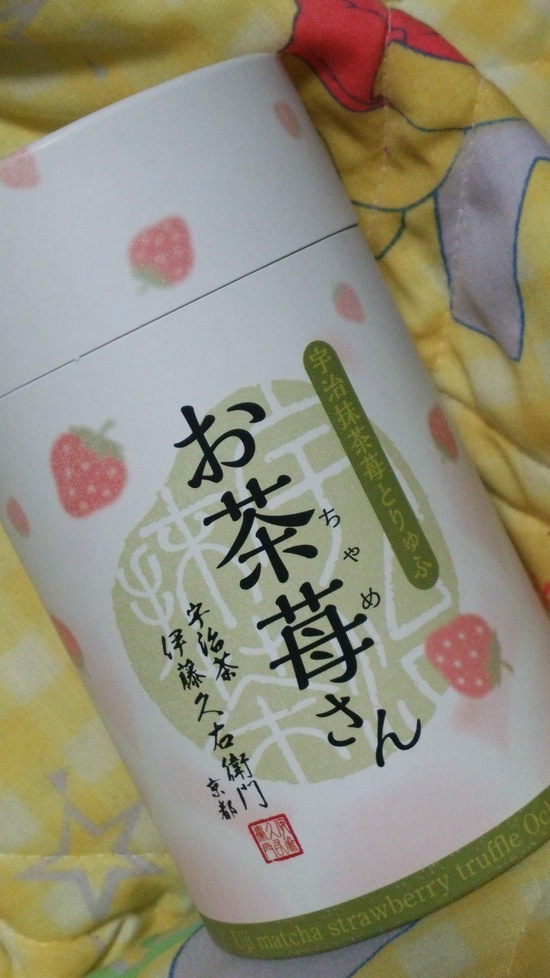 宇治抹茶苺とりゅふ
お茶苺さん
ちゃめ
宇治茶
伊藤久右衛門
京都
Uji matcha strawberry truffle Och